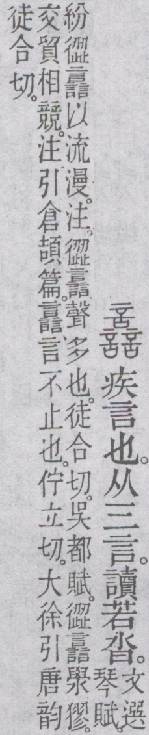 譶疾言也。从三言。讀若沓。文選
琴賦。
紛㒊譶以流漫。注。㒊譶聲多也。徒合切。吳都賦。㒊譶澩㺒。
交貿相競。注引倉頡篇。譶言不止也。佇立切。大徐引唐韵
徒合切。